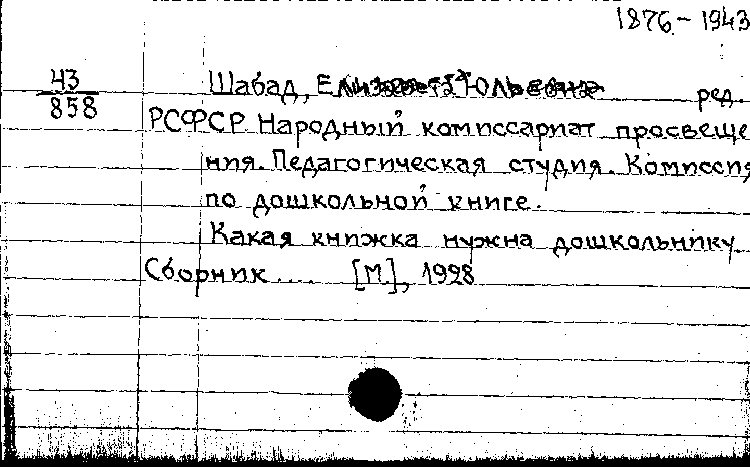 1876-1943
43
858
Шабад, Елизавета Юльевна ред.
РСФСР Народный комиссариат просвеще
ния. Педагогическая студия. Комиссия
по дошкольной книге.
Какая книжка нужна дошкольнику
Сборник.... [М.], 1928